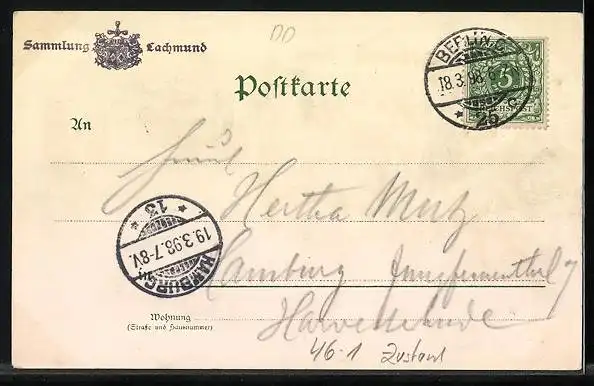 Sammlung Lachmund
DD
Postkarte
BERLIN C.
18.3.98.6
* 25 c.
5
REICHSPOST
An
Fräul.
Hertha Merz
* 13 *
19.3.98.7-8V.
HAMBURG
in Hamburg Jungfrauenthal 7
Harvestehude
Wohnung
(Straße und Hausnummer)
46.1 Zustand